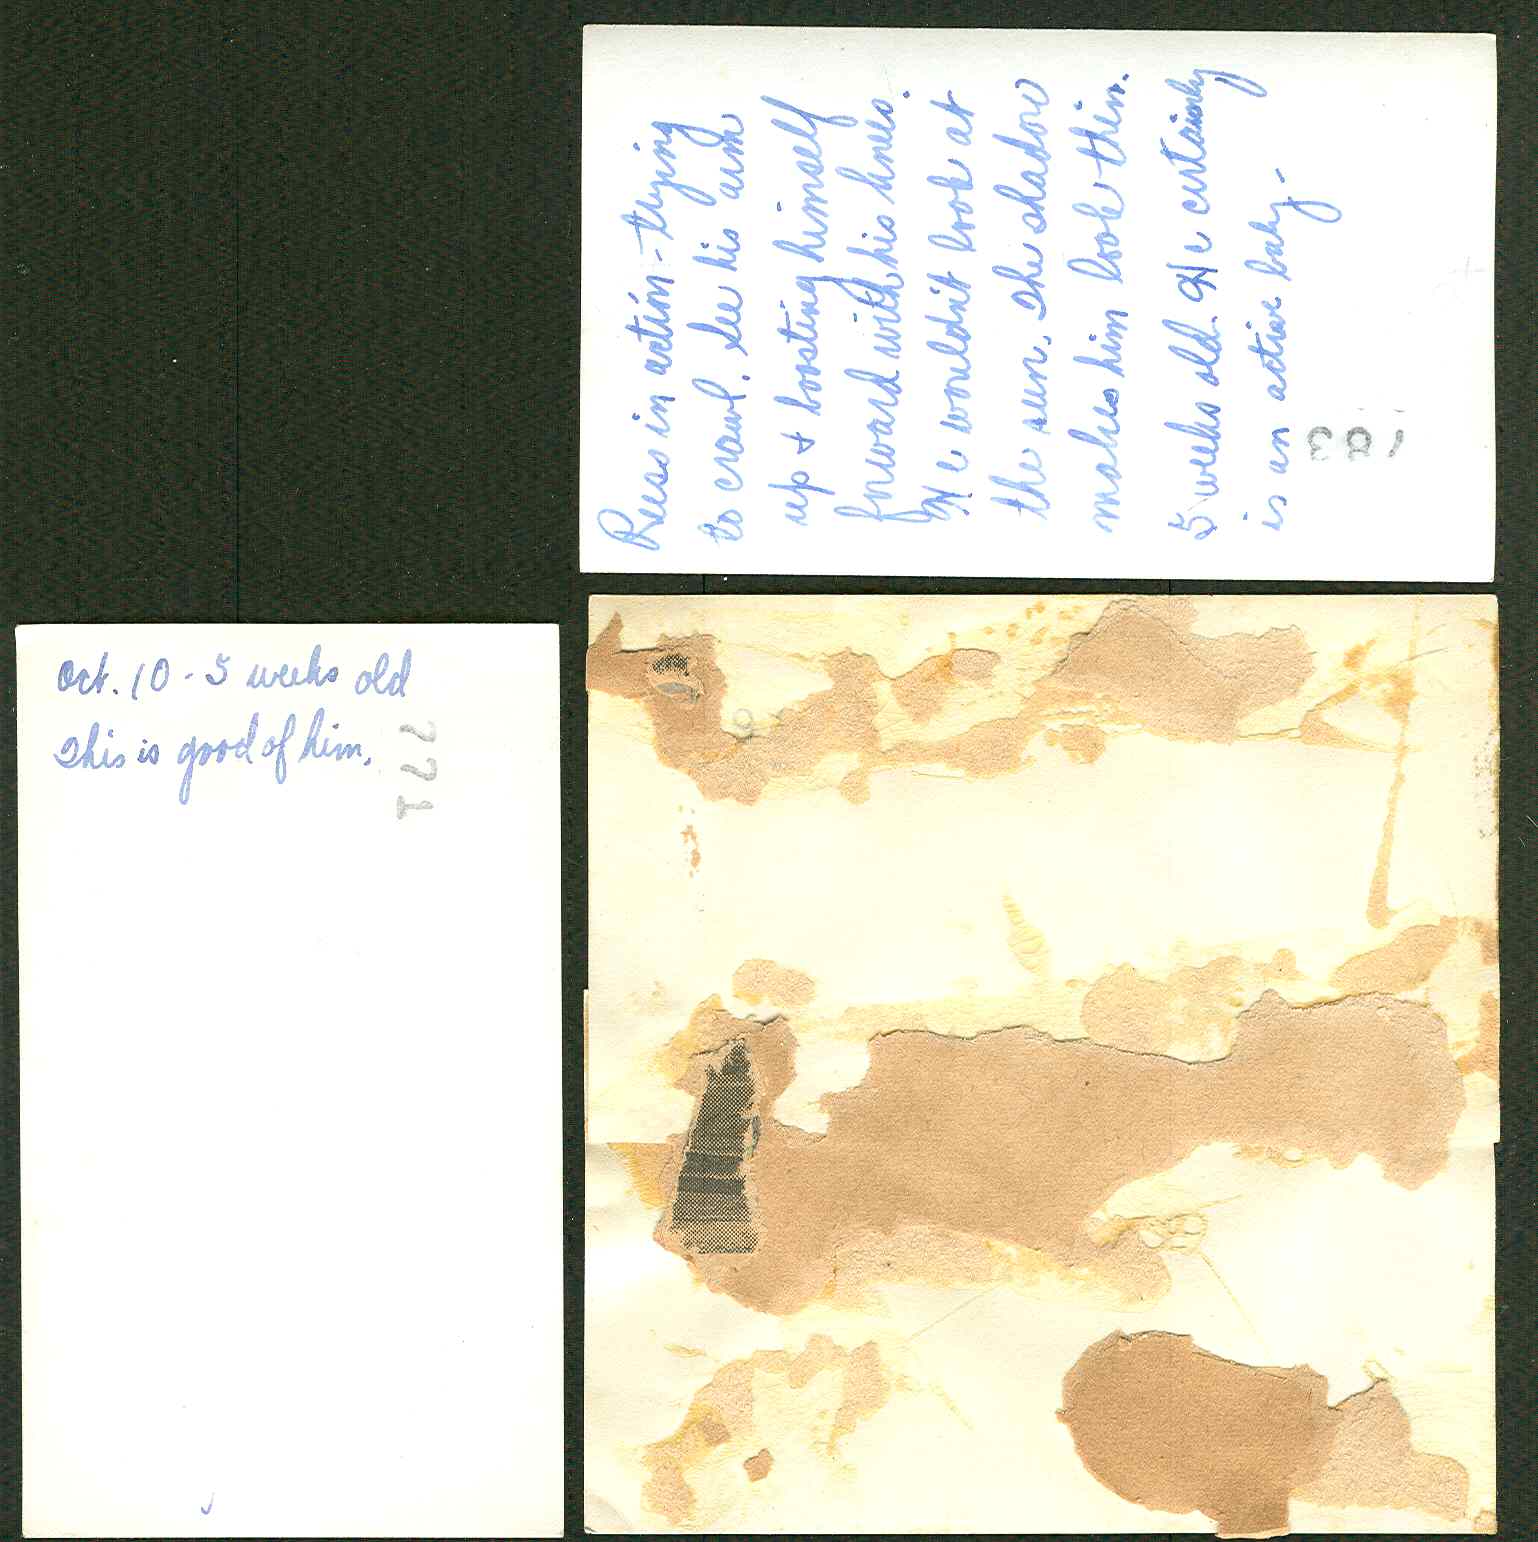 Russ in action - trying
to crawl. See his arm
up + boosting himself
forward with his knees.
He wouldn't look at
the sun. The shadow
makes him look thin.
5 weeks old. He certainly
is an active baby -
Oct. 10 - 5 weeks old
This is good of him.
771